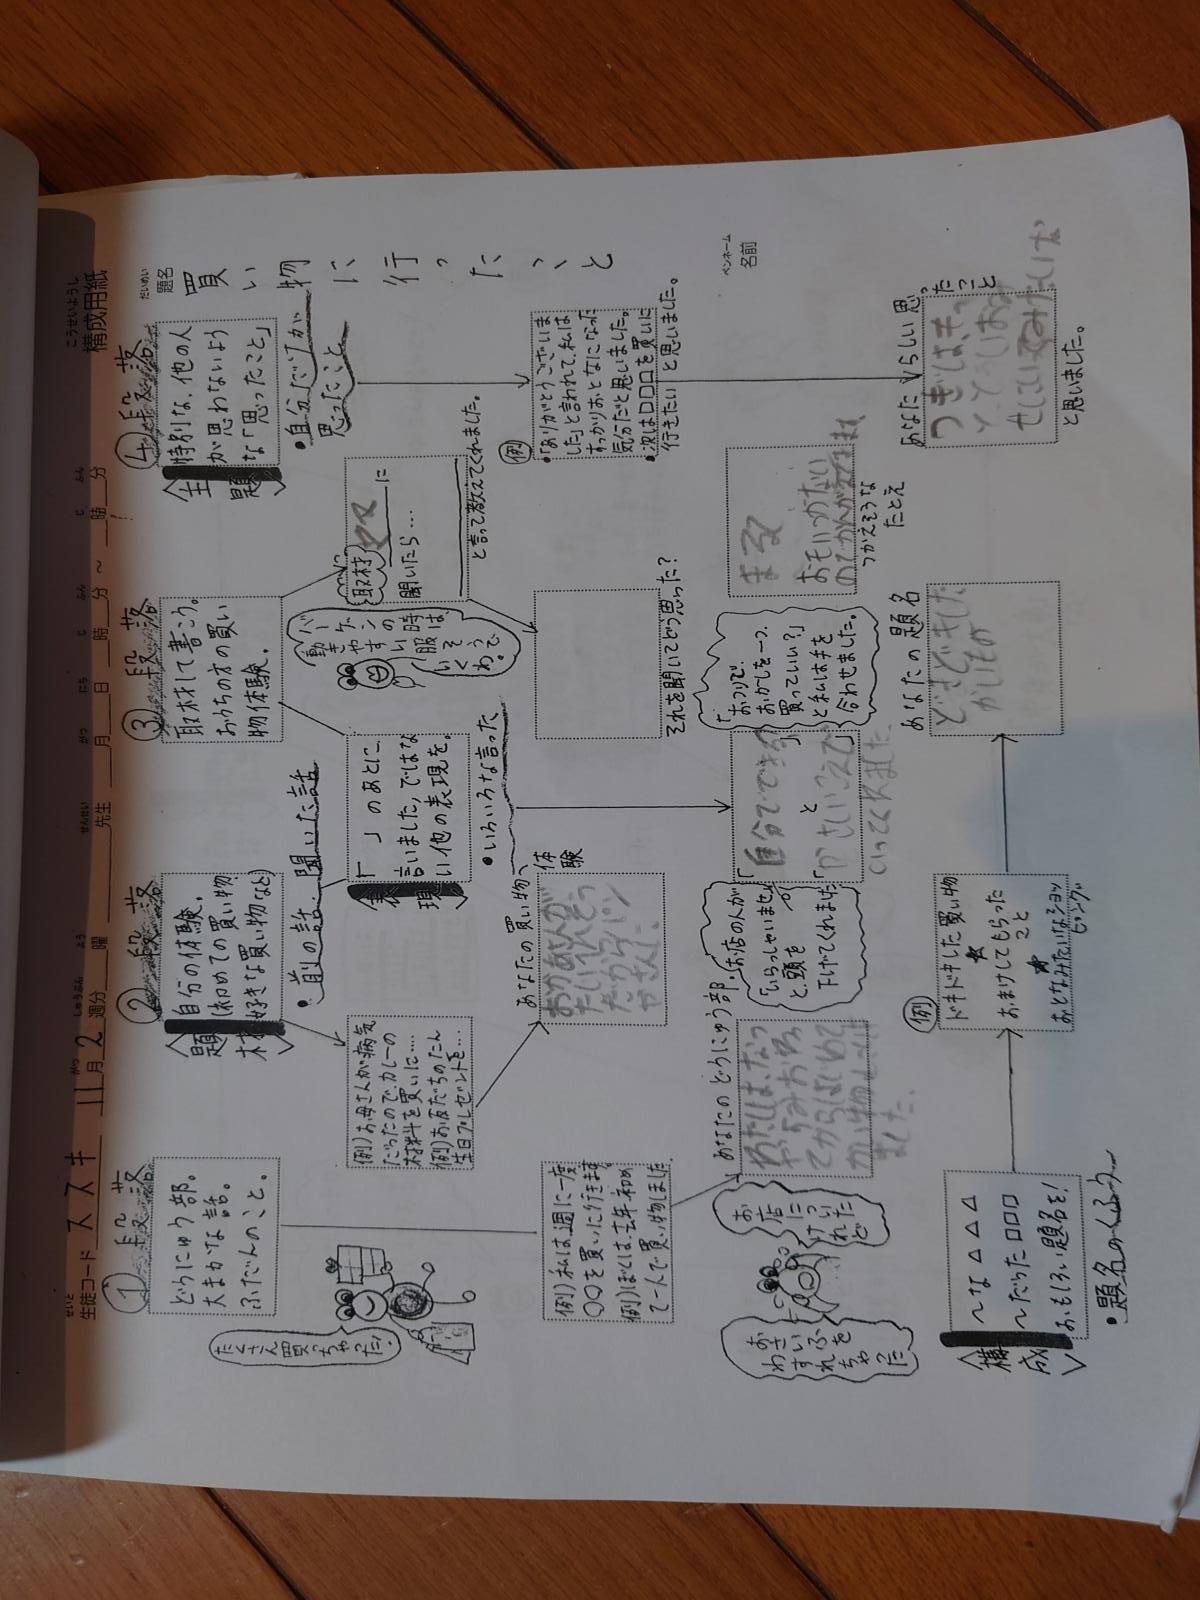 構成用紙
こうせいようし
生徒コード ススキ 11月2週分 曜 先生 月 日 時 分 ～ 時 分
題名 買い物に行ったこと
だいめい
ペンネーム
名前
①段落
どうにゅう部。
大まかな話。
ふだんのこと。
たくさん買っちゃった!
例)私は、週に一度
〇〇を買いに行きます。
例)ぼくは、去年初め
て一人で買い物しました
あなたのどうにゅう部。
わたしは、なつ
やすみおわっ
てからはじめて
かい物にいき
ました。
お店に
いけっ
れど
おさいふを
わすれ
ちゃった
②段落
〈題材〉
自分の体験。
(初めての買い物
好きな買い物など)
・前の話 聞いた話
例)お母さんが病気
だったので、カレーの
材料を買いに…。
例)お友だちのたん
生日プレゼントを…
あなたの買い物、
体験
〈表現〉
「 」のあとに、
言いました,ではな
い他の表現を。
・いろいろな言った
・お店の人が
「いらっしゃいませ」
と、頭を
下げてくれました
「自分でできる」
と
いってくれました
「おつりで、
おかしを一つ、
買っていい?」
と私は手を
合わせました。
③段落
取材して書こう。
おうちの方の買い
物体験。
バーゲンの時
動きやすい服は、
取材 ママに
聞いたら…
と言って教えてくれました。
それを聞いてどう思った?
つかえそうな
たとえ
まるで
おもいつかない
のでかんがえてます
④段落
〈主題〉
特別な、他の人
が思わないよう
な「思ったこと」
・自分だけが
思ったこと
例
・「ありがとうございま
した」と言われて、私は
すっかりおとなになった
気分だと思いました。
・次は口口口を買いに
行きたい と思いました。
あなたらしい思ったこと
つぎは、もっ
と
と思いました。
〈構成〉
～な△△△△
～だった口口口
おもしろい題名を!
・題名のくふう
例
ドキドキした買い物
★
おまけしてもらった
こと
★
おとなみたいなショッ
ピング
あなたの題名
どきどきした
かいもの